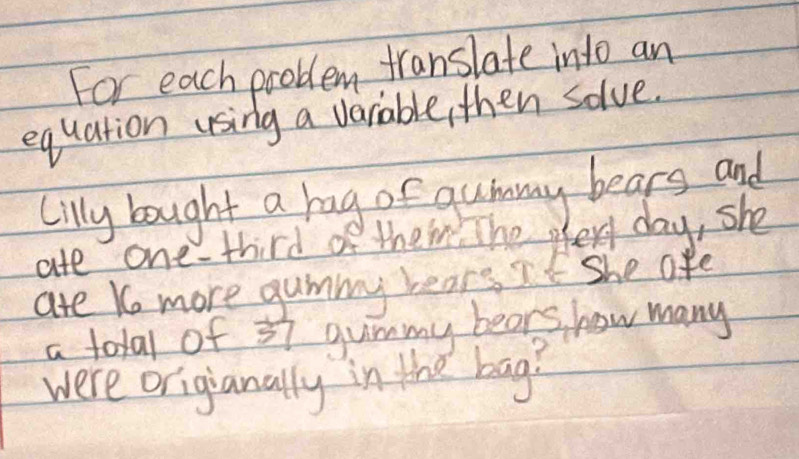 For each problem translate into an
equation using a variable, then solve.
Lilly bought a bag of gummy bears and
ate one-third of them. The next day, she
ate 16 more gummy bears. If she ate
a total of 37 gummy bears, how many
were origianally in the bag?